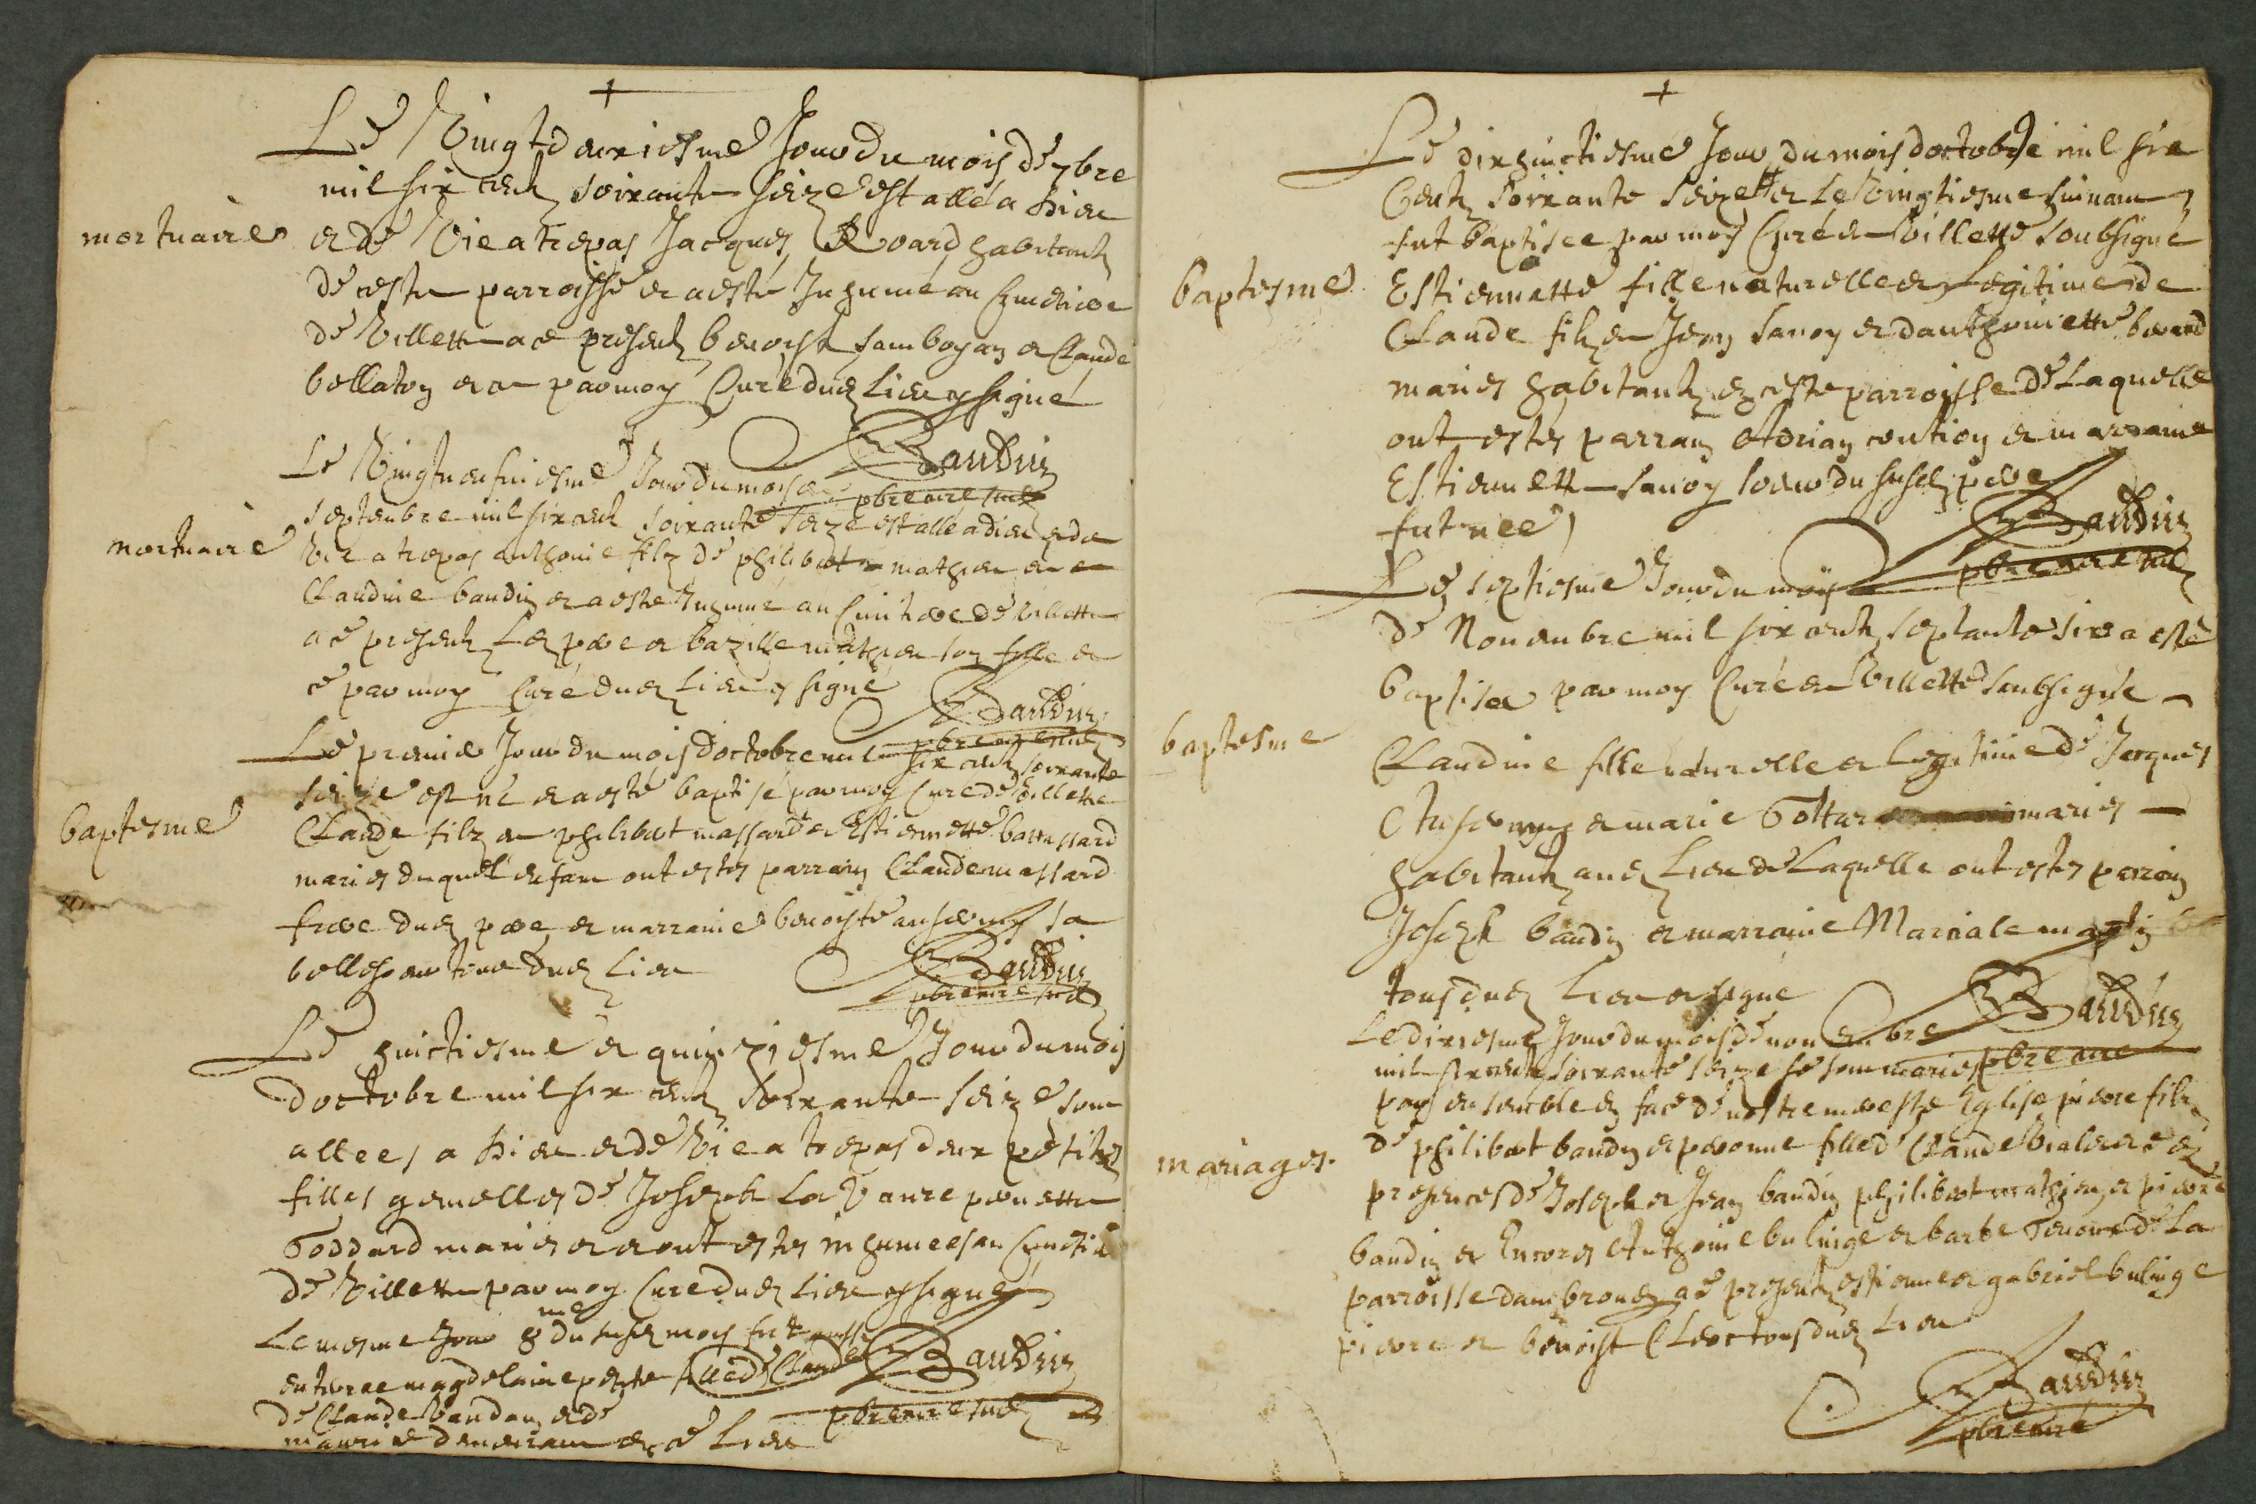 Le Vingtdeuxiesme Jour du mois de 7bre
mil six cent soixante seize est allé a Dieu
mortuaire
et de Vie a trepas Jacques Rouard habitant
de ceste parroisse et a esté Inhumé au Cymetiere
de Villette a ce present benoist et Claude
bellaton et a par moy Curé dud lieu signé
Baudin
pbre curé susd
Le Vingtneufviesme Jour du mois de
septembre mil six cent soixante seize est allé a dieu et de
mortuaire
Vie a trepas anthoine filz de philibert mathieu et
Claudine baudin et a esté Inhumé au Cimitiere de Villette
a ce present Led pere et bazille mathieu son et
par moy Curé dud lieu signé
Baudin
Le premier Jour du mois doctobre mil six cent soixante
seize est né et a esté baptisé par moy Curé de Villette
baptesme
Claude filz de philibert massard et Estiennette battassard
mariés duquel enfant ont estes parrain Claude massard
frere dud pere et marraine benoiste sa
belle dud lieu
Baudin
pbre curé susd
Le huictiesme et quinziesme Jour du mois
doctobre mil six cent soixante seize sont
allees a Dieu et de Vie a trepas deux petites
filles gemelles de Joseph et
Goddard mariés et ont estes inhumees au Cymetiere
de Villette par moy Curé dud lieu signé
Le mesme Jour 8me du susd mois fut aussi
enterree magdelaine fille de Claude
Baudin
de Claude et de
pbre curé susd
ce lieu
Le dixhuictiesme Jour du mois doctobre mil six
Cent soixante seize et le Vingtiesme suivant
fut baptisee par moy Curé de Villette soubsigné
baptesme
Estiennette fille naturelle et Legitime de
Claude filz de Jean sanoy et danthoinette
mariés habitant en ceste parroisse de Laquelle
ont estes parrain Adrian et marraine
Estiennette sanoy soeur du susd pere
fut nee
Baudin
pbre curé susd
Le septiesme Jour du mois
de Novembre mil six cent septante six a esté
baptisee par moy Curé de Villette soubsigné
baptesme
Claudine fille naturelle et Legitime de Jacques
et marie mariés
habitant aud lieu de Laquelle ont estes parrain
Joseph baudin et marraine
tous dud lieu et signé
Baudin
pbre curé
Le dixiesme Jour du mois de novembre
mil six cent soixante seize se sont mariés
par ensemble en face de nostre mere ste Eglise pierre filz
mariages.
de philibert baudin et peronne fille de Claude en
presences de Joseph et Jean baudin philibert mathieu et pierre
baudin et Encores Anthoine bulinge et barbe de La
parroisse dambronay a ce present estienne et gabriel bulinge
pierre et benoist Clerc tous dud lieu
Baudin
pbre curé